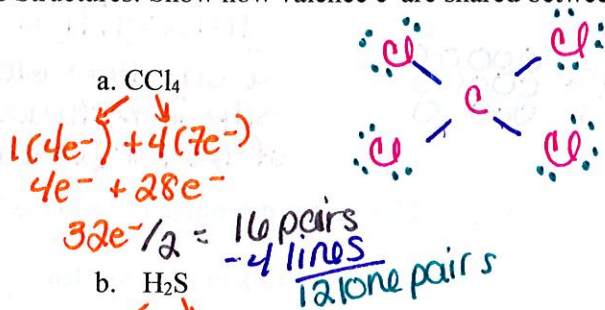 Structures. Show how valence e⁻ are shared betwee
a. CCl₄
Cl Cl
C
Cl Cl
1(4e⁻) + 4(7e⁻)
4e⁻ + 28e⁻
32e⁻/2 = 16 pairs
-4 lines
12 lone pairs
b. H₂S